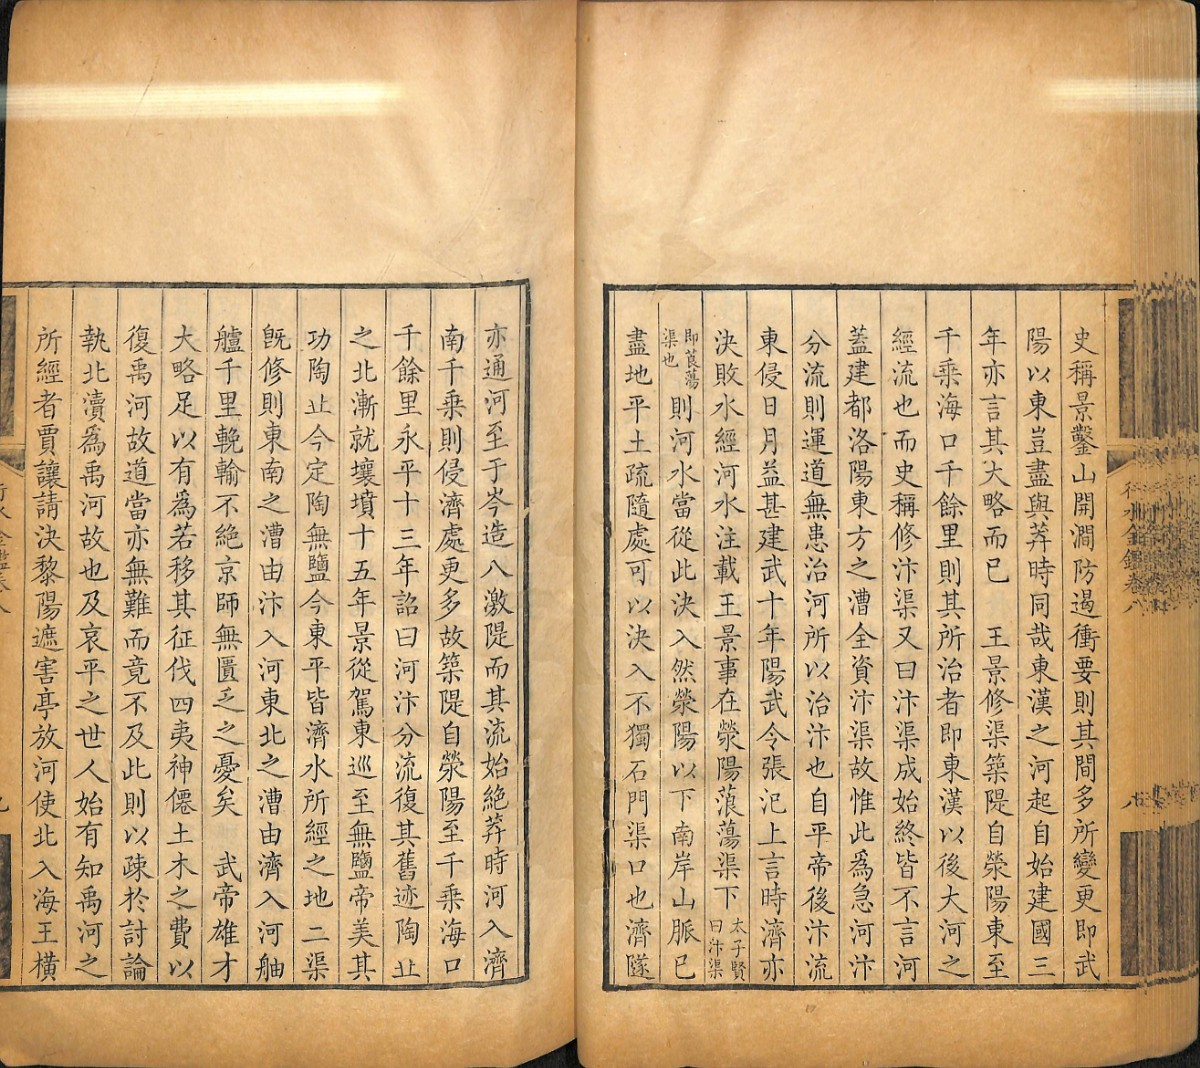 史稱景鑿山開澗防遏衝要則其間多所變更即武
陽以東豈盡與莽時同哉東漢之河起自始建國三
年亦言其大略而已　王景修渠築隄自滎陽東至
千乘海口千餘里則其所治者即東漢以後大河之
經流也而史稱修汴渠又曰汴渠成始終皆不言河
蓋建都洛陽東方之漕全資汴渠故惟此爲急河汴
分流則運道無患治河所以治汴也自平帝後汴流
東侵日月益甚建武十年陽武令張汜上言時濟亦
決敗水經河水注載王景事在滎陽蒗蕩渠下太子賢曰汴渠
即莨蕩渠也則河水當從此決入然滎陽以下南岸山脈已
盡地平土疏隨處可以決入不獨石門渠口也濟隧
亦通河至于岑造八激隄而其流始絶莽時河入濟
南千乘則侵濟處更多故築隄自滎陽至千乘海口
千餘里永平十三年詔曰河汴分流復其舊迹陶丠
之北漸就壤墳十五年景從駕東巡至無鹽帝美其
功陶丠今定陶無鹽今東平皆濟水所經之地　二渠
旣修則東南之漕由汴入河東北之漕由濟入河舳
艫千里輓輸不絶京師無匱乏之憂矣　武帝雄才
大略足以有爲若移其征伐四夷神僊土木之費以
復禹河故道當亦無難而竟不及此則以疎於討論
執北瀆爲禹河故也及哀平之世人始有知禹河之
所經者賈讓請決黎陽遮害亭放河使北入海王橫
行水金鑑卷八
八